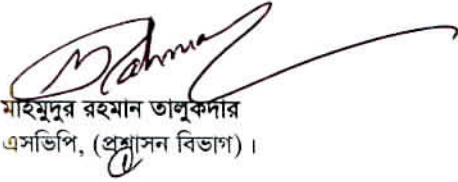 মাহমুদুর রহমান তালুকদার
এসভিপি, (প্রশাসন বিভাগ) ।